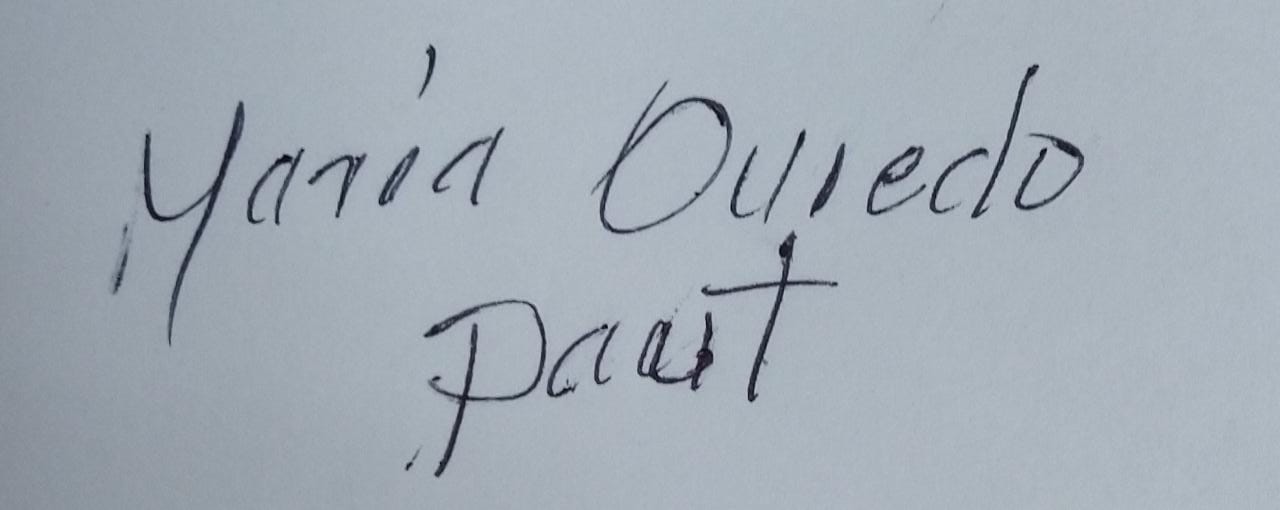 María Oviedo
Paut